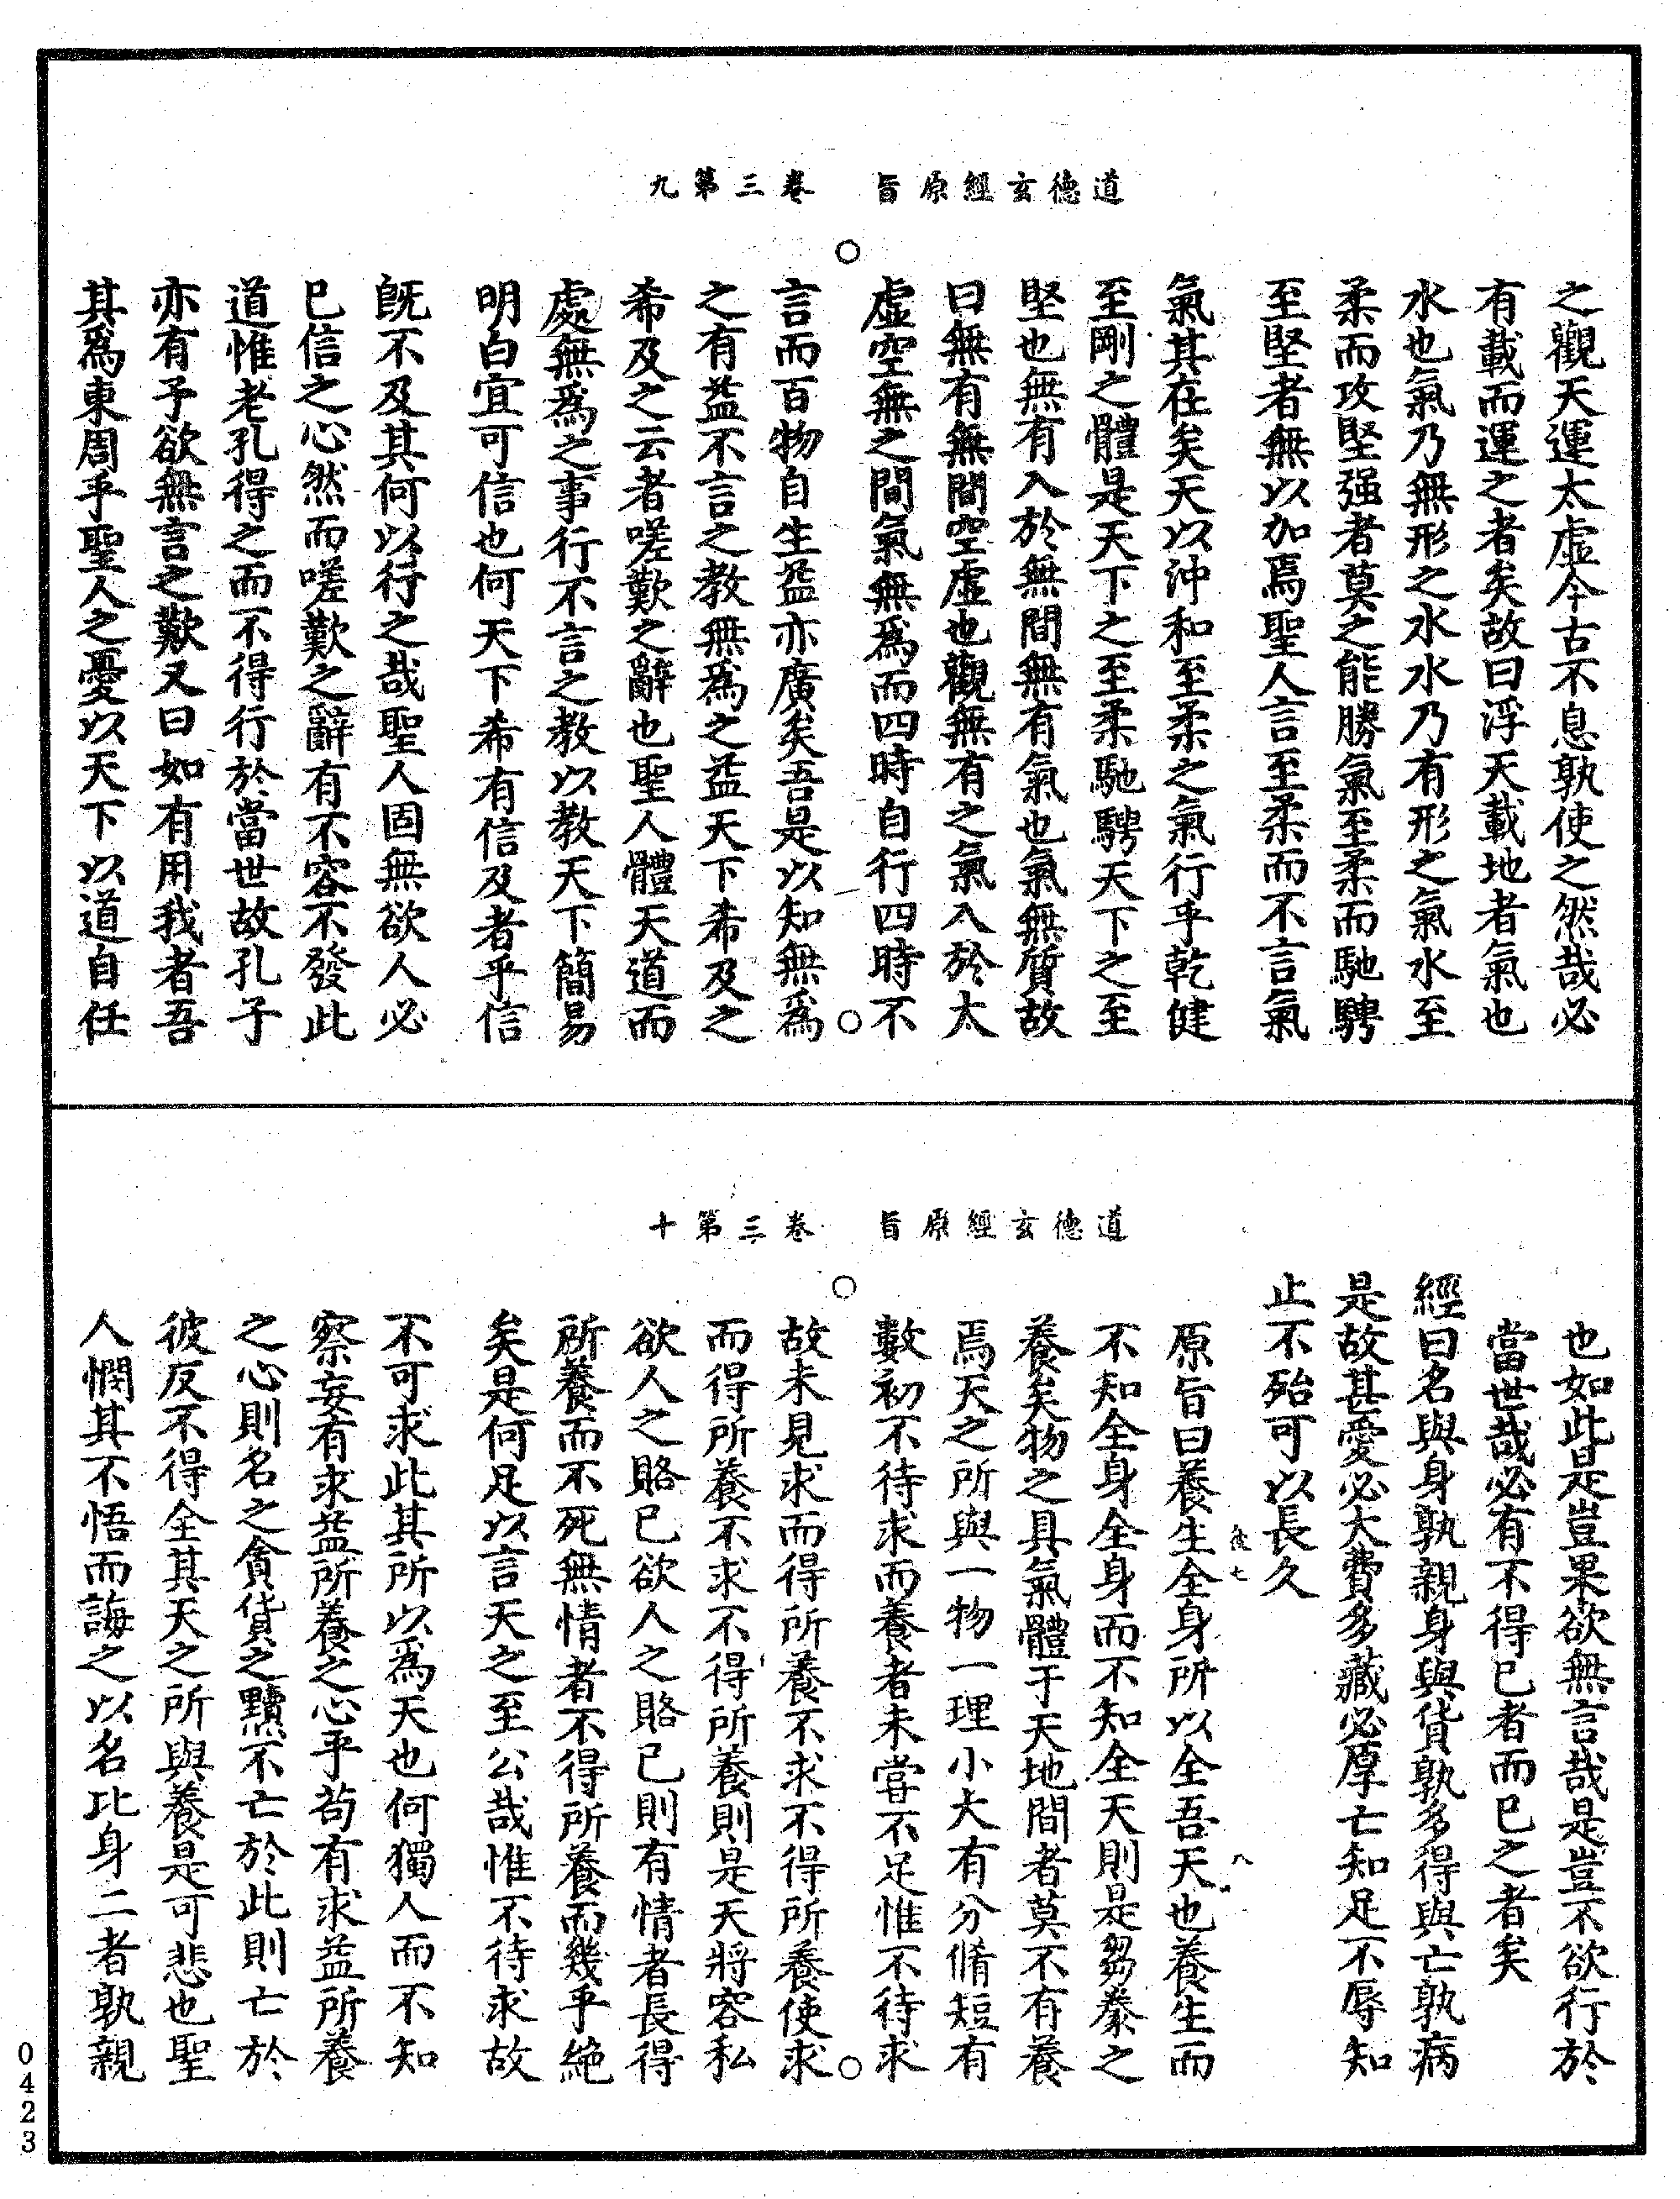 道德玄經原旨　卷三第九
之觀天運太虛今古不息孰使之然哉必
有載而運之者矣故曰浮天載地者氣也
水也氣乃無形之水水乃有形之氣水至
柔而攻堅强者莫之能勝氣至柔而馳騁
至堅者無以加焉聖人言至柔而不言氣
氣其在矣天以沖和至柔之氣行乎乾健
至剛之體是天下之至柔馳騁天下之至
堅也無有入於無間無有氣也氣無質故
曰無有無間空虛也觀無有之氣入於太
虛空無之間氣無爲而四時自行四時不
言而百物自生益亦廣矣吾是以知無爲
之有益不言之教無爲之益天下希及之
希及之云者嗟歎之辭也聖人體天道而
處無爲之事行不言之教以教天下簡易
明白宜可信也何天下希有信及者乎信
旣不及其何以行之哉聖人固無欲人必
已信之心然而嗟歎之辭有不容不發此
道惟老孔得之而不得行於當世故孔子
亦有予欲無言之歎又曰如有用我者吾
其爲東周乎聖人之憂以天下以道自任
道德玄經原旨　卷三第十
也如此是豈果欲無言哉是豈不欲行於
當世哉必有不得已者而已之者矣
經曰名與身孰親身與貨孰多得與亡孰病
是故甚愛必大費多藏必厚亡知足不辱知
止不殆可以長久
原旨曰養生全身所以全吾天也養生而
不知全身全身而不知全天則是芻豢之
養矣物之具氣體于天地間者莫不有養
焉天之所與一物一理小大有分脩短有
數初不待求而養者未嘗不足惟不待求
故未見求而得所養不求不得所養使求
而得所養不求不得所養則是天將容私
欲人之賂已欲人之賂已則有情者長得
所養而不死無情者不得所養而幾乎絕
矣是何足以言天之至公哉惟不待求故
不可求此其所以爲天也何獨人而不知
察妄有求益所養之心乎苟有求益所養
之心則名之貪貨之黷不亡於此則亡於
彼反不得全其天之所與養是可悲也聖
人憫其不悟而誨之以名比身二者孰親
0423